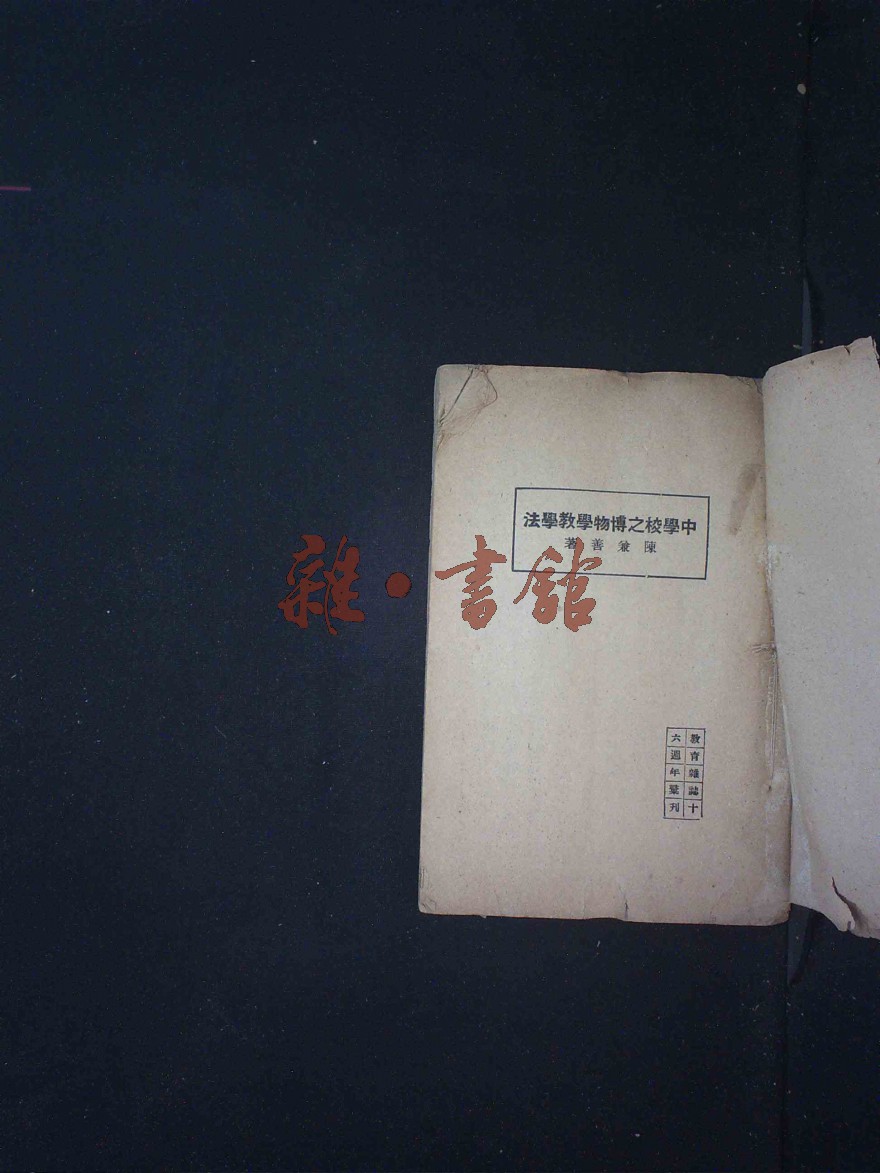 中學校之博物學教學法
陳兼善著
雜·書館
教育雜誌十
六週年彙刊